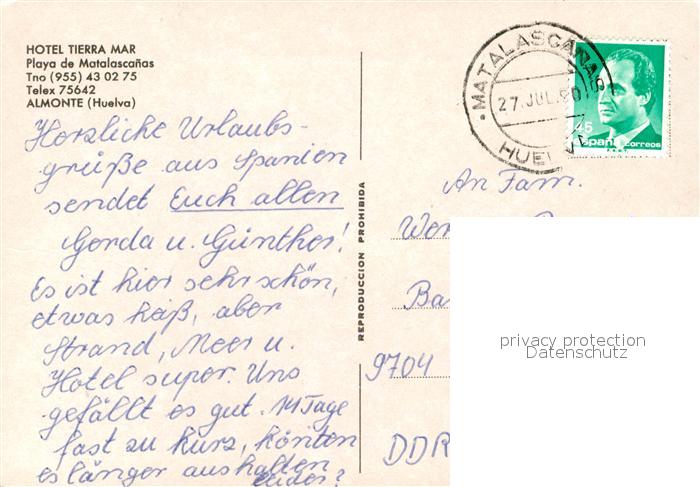 HOTEL TIERRA MAR
Playa de Matalascañas
Tno (955) 43 02 75
Telex 75642
ALMONTE (Huelva)
Herzliche Urlaubs-
grüße aus Spanien
sendet Euch allen
Gerda u. Günther!
Es ist hier sehr schön,
etwas heiß, aber
Strand, Meer u.
Hotel super. Uns
gefällt es gut. 14 Tage
fast zu kurz, könten
es länger aushalten
leider?
REPRODUCCION PROHIBIDA
MATALASCAÑAS
27. JUL. 90
HUEL
45
españa correos
An Fam.
Wer
Ba
9704
DDR
privacy protection
Datenschutz